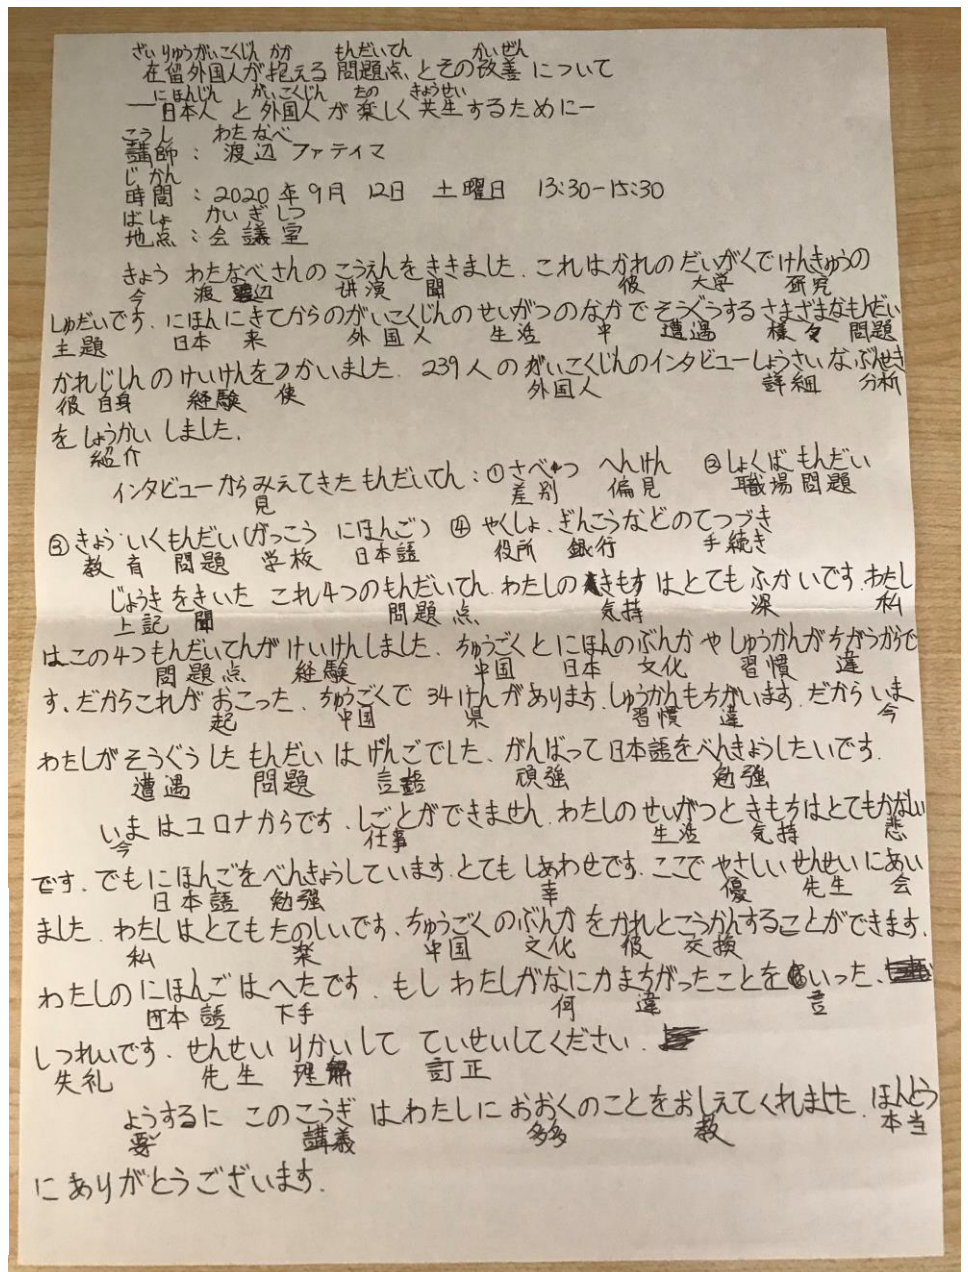 ざいりゅうがいこくじん かか もんだいてん かいぜん
在留外国人が抱える 問題点 とその改善 について
にほんじん がいこくじん たの きょうせい
―日本人 と 外国人 が 楽しく 共生するために―
こうし わたなべ
講師： 渡辺 ファティマ
じかん
時間：2020 年 9月 12日 土曜日 13:30-15:30
ばしょ かいぎしつ
地点：会議室
きょう わたなべさんの こうえんを ききました. これは かれの だいがくで けんきゅうの
今 渡辺 講演 聞 彼 大学 研究
しゅだいです. にほんにきてからのがいこくじんのせいがつのなかで そうぐうする さまざまなもんだい
主題 日本 来 外国人 生活 中 遭遇 様々 問題
かれじしんの けいけんを つかいました. 239人の がいこくじんのインタビューしょうさいな ぶんせき
彼自身 経験 使 外国人 詳細 分析
を しょうかい しました.
紹介
インタビューから みえてきた もんだいてん：① さべつ へんけん ② しょくば もんだい
見 差別 偏見 職場問題
③ きょういくもんだい(がっこう にほんご) ④ やくしょ、ぎんこうなどのてつづき
教育 問題 学校 日本語 役所 銀行 手続き
じょうき をきいた これ4つのもんだいてん. わたしの きもす は とても ふかいです. わたし
上記 聞 問題点 気持 深 私
は この4つもんだいてんが けいけんしました. ちゅうごくとにほんのぶんか や しゅうかんがちがうからで
問題点 経験 中国 日本 文化 習慣 違
す. だからこれが おこった. ちゅうごくで 34けんがあります. しゅうかんもちがいます. だから いま
起 中国 県 習慣 違 今
わたしが そうぐう した もんだい は げんごでした. がんばって 日本語をべんきょうしたいです.
遭遇 問題 言語 頑強 勉強
いま は コロナからです. しごとができません. わたしの せいがつと きもちは とてもかなしい
今 仕事 生活 気持 悲
です. でもにほんごをべんきょうしています. とても しあわせです. ここで やさしい せんせい にあい
日本語 勉強 幸 優 先生 会
ました. わたしは とても たのしいです. ちゅうごくのぶんか をかれとこうかんすることができます.
私 楽 中国 文化 彼 交換
わたしの にほんご は へたです. もし わたしがなにかまちがったことを いった、
日本語 下手 何 違 言
しつれいです. せんせい りかいして ていせいしてください.
失礼 先生 理解 訂正
ようするに このこうぎ は わたしに おおくのことをおしえてくれました. ほんとう
要 講義 多多 教 本当
にありがとうございます.